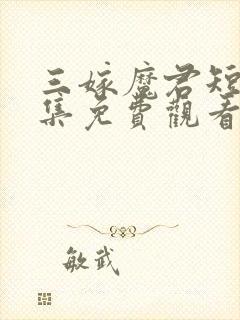 三嫁魔君短
集免費觀看
敏武